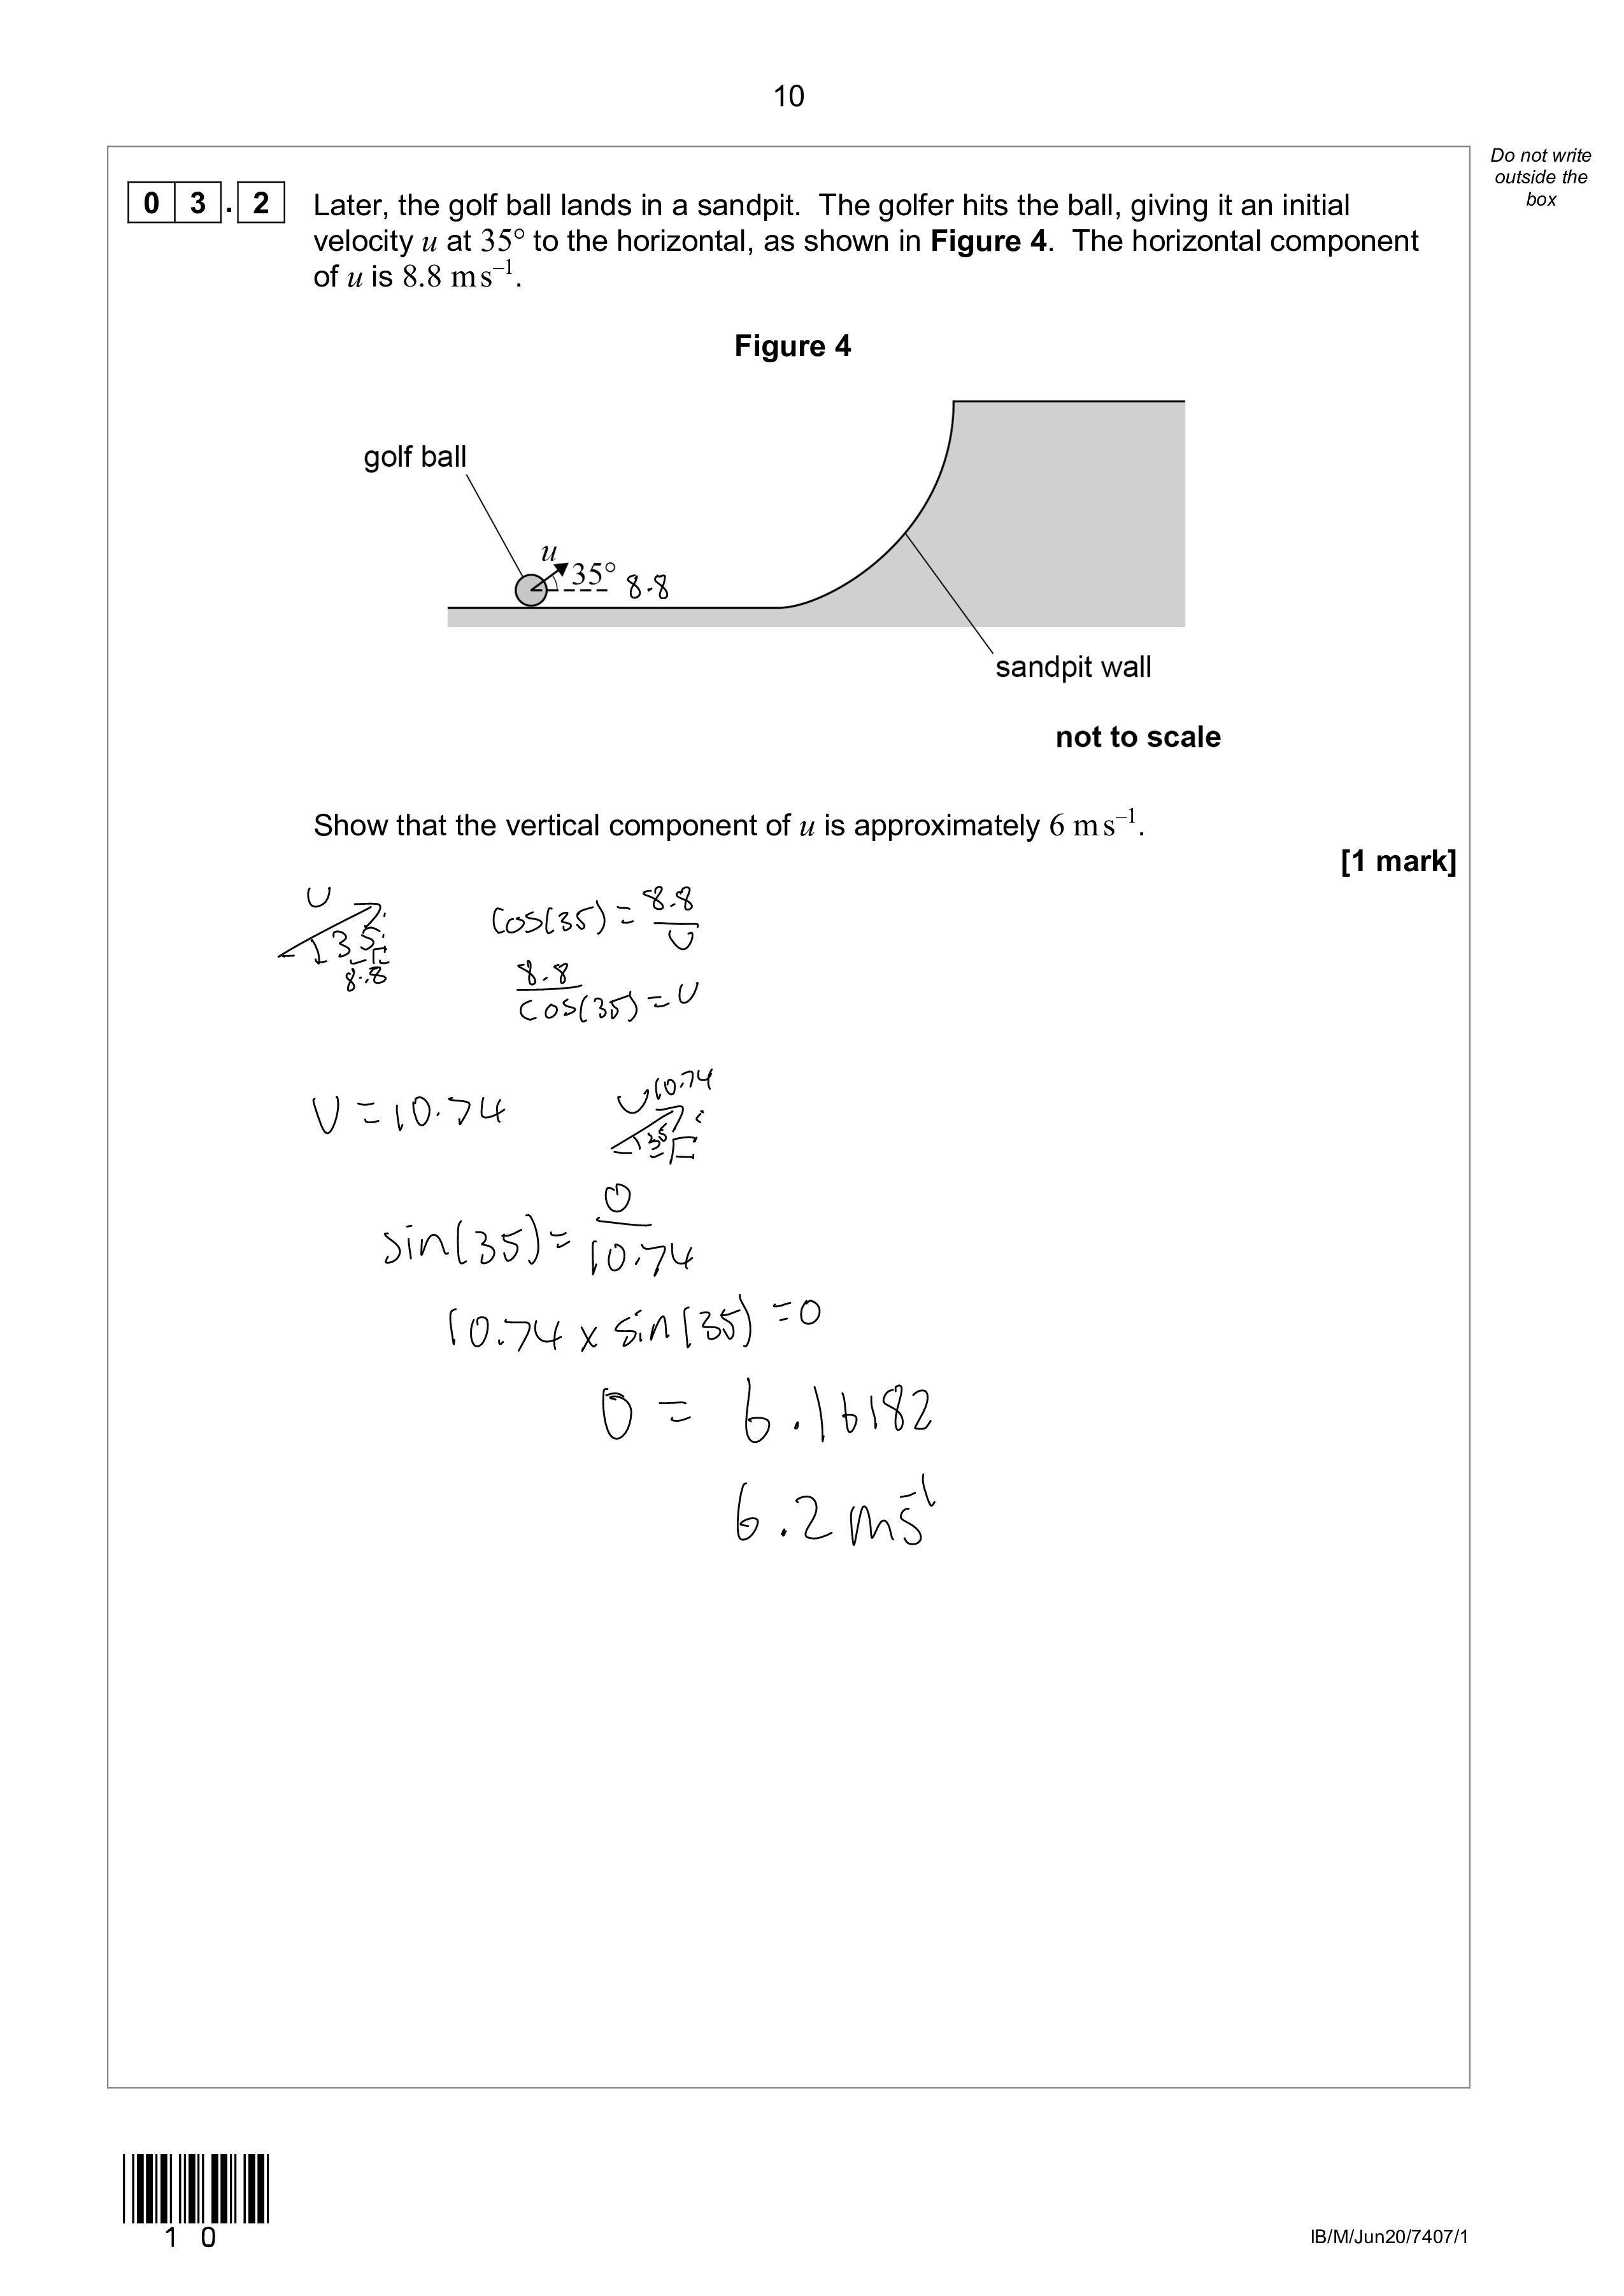 10
Do not write
outside the
box
0 3 . 2
Later, the golf ball lands in a sandpit. The golfer hits the ball, giving it an initial
velocity u at 35° to the horizontal, as shown in Figure 4. The horizontal component
of u is 8.8 m s⁻¹.
Figure 4
golf ball
u
35° 8.8
sandpit wall
not to scale
Show that the vertical component of u is approximately 6 m s⁻¹.
[1 mark]
U
35
8.8
cos(35) = 8.8/U
8.8/cos(35) = U
U = 10.74
U 10.74
35
sin(35) = O/10.74
10.74 x sin(35) = O
O = 6.16182
6.2 ms⁻¹
1 0
IB/M/Jun20/7407/1